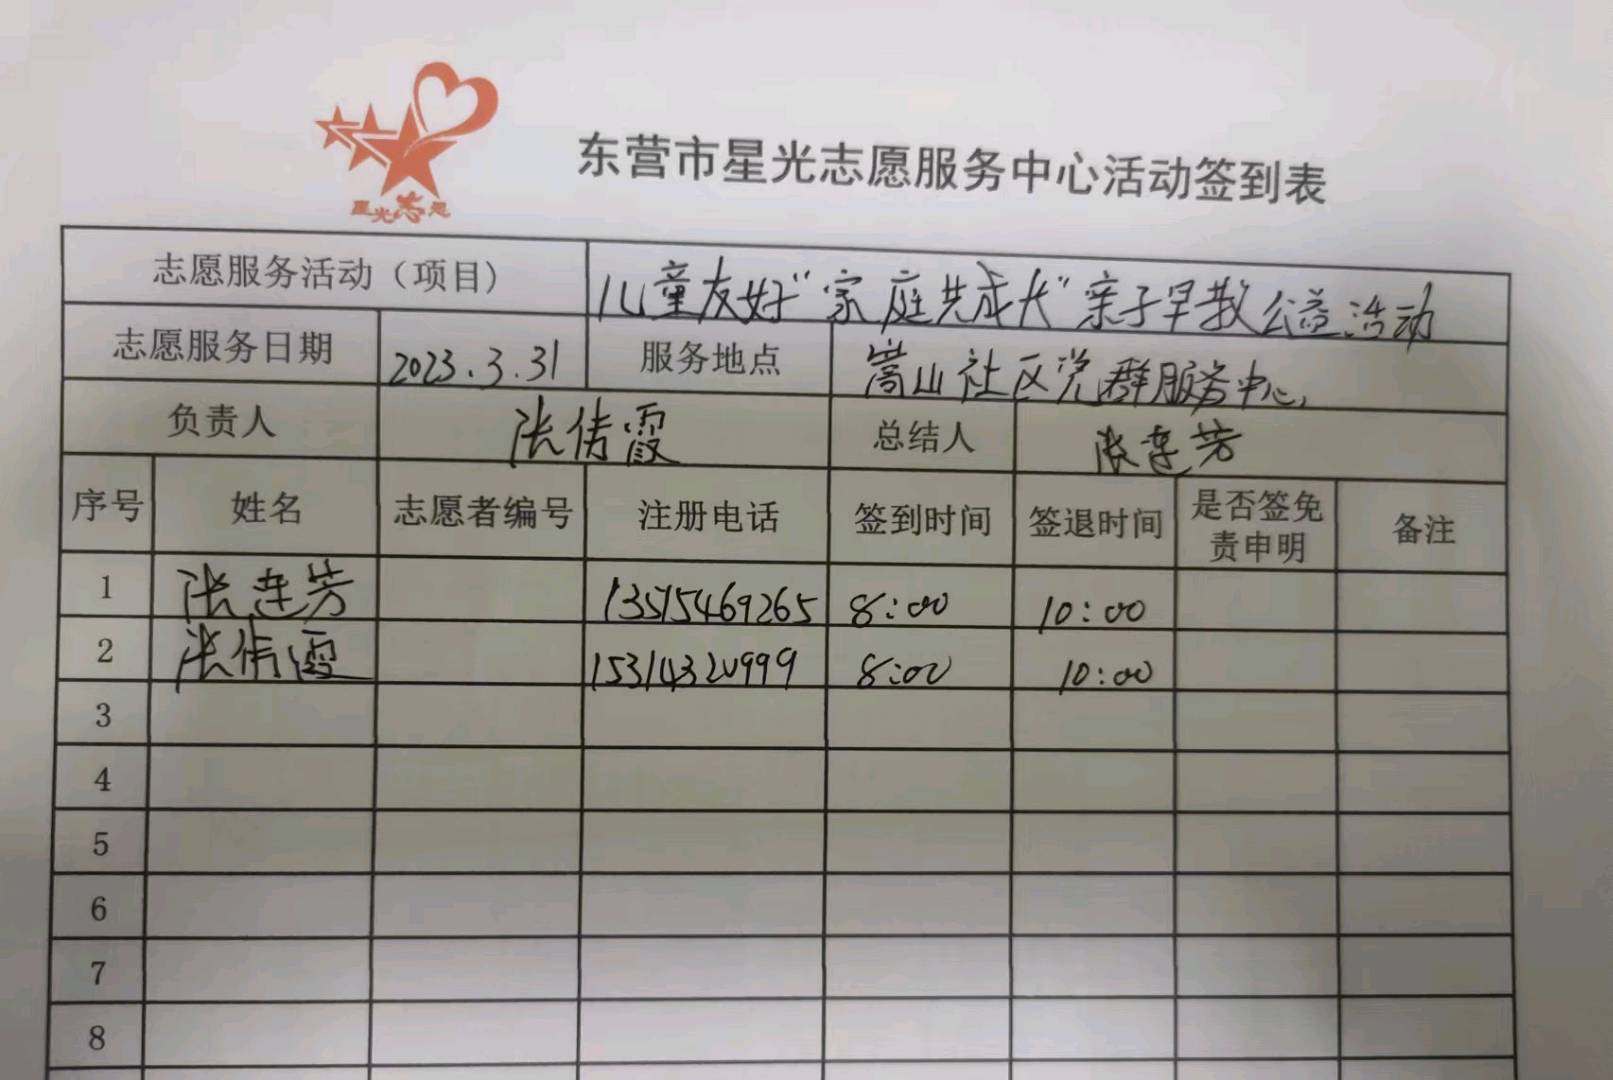 星光志愿
东营市星光志愿服务中心活动签到表
志愿服务活动（项目） 儿童友好“家庭共成长”亲子早教公益活动
志愿服务日期 2023.3.31 服务地点 嵩山社区党群服务中心
负责人 张倩霞 总结人 张连芳
序号 姓名 志愿者编号 注册电话 签到时间 签退时间 是否签免责申明 备注
1 张连芳 13515469265 8:00 10:00
2 张倩霞 15314320999 8:00 10:00
3
4
5
6
7
8